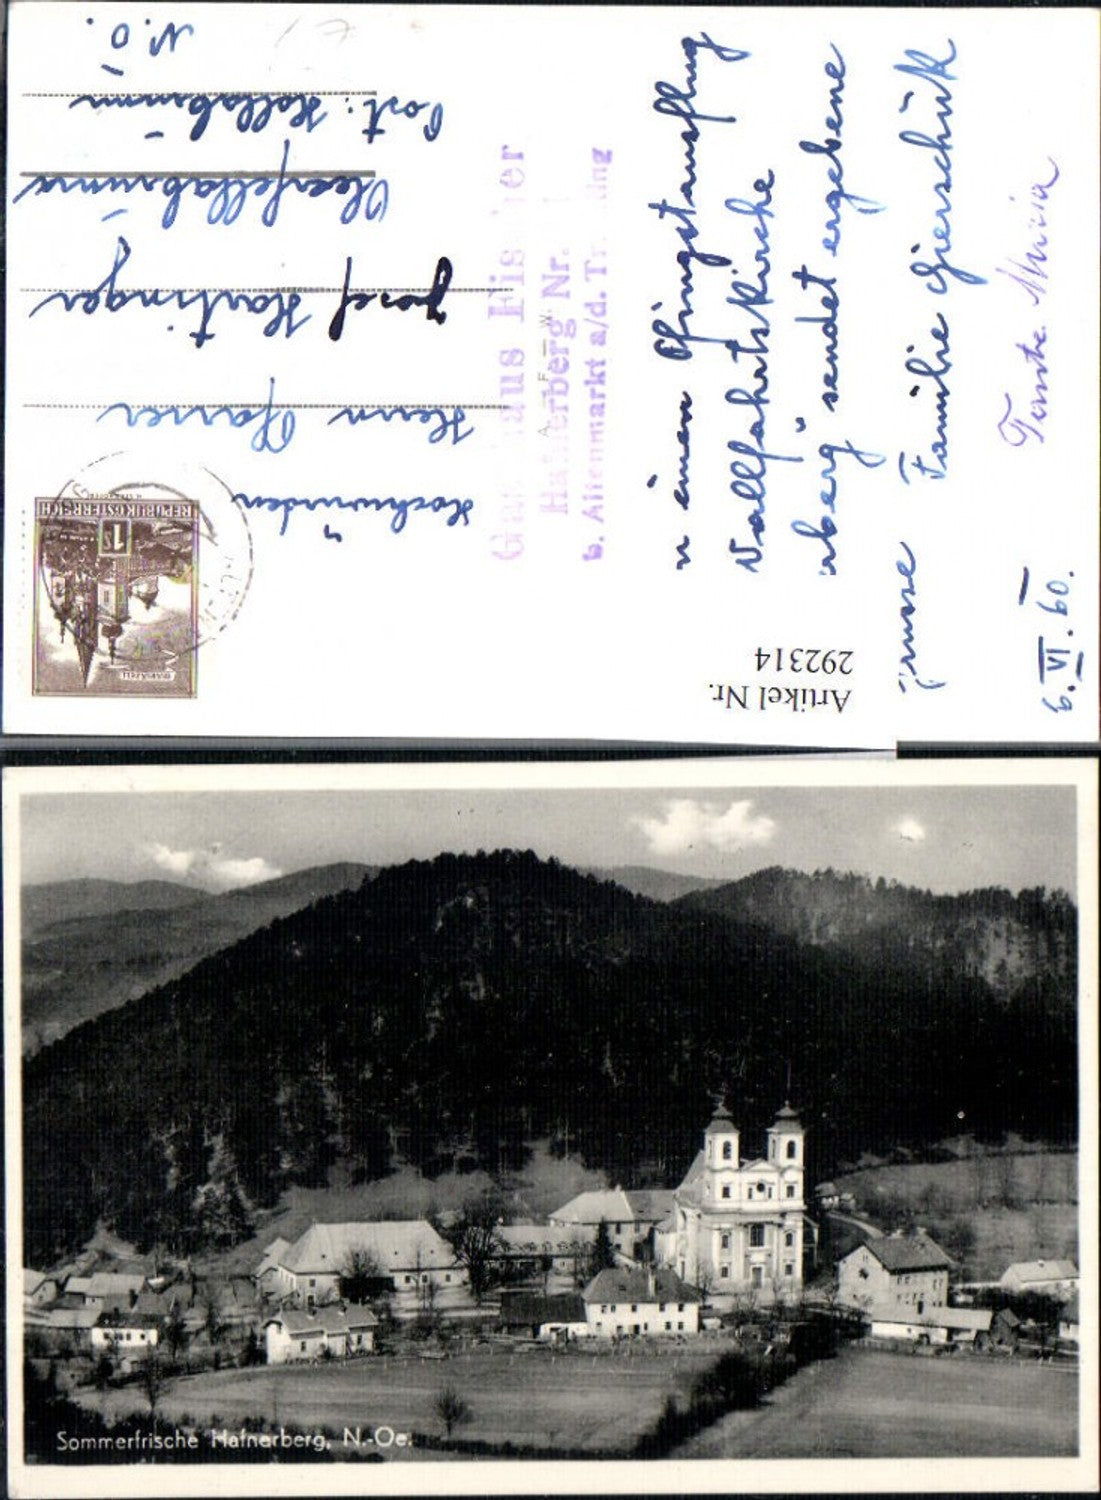 6. VI. 60.
n einen Pfingstausflug
Wallfahrtskirche
rberg" sendet ergebene
Grüsse Familie Gierschük
Tante Maria
Gasthaus Fischer
Hafnerberg Nr.
b. Altenmarkt a/d. Triesting
Hochwürden
Herrn Pfarrer
Josef Hartinger
Oberfellabrunn
Post: Hollabrunn
N.Ö.
MARIAZELL
1S
REPUBLIK ÖSTERREICH
Artikel Nr.
292314
Sommerfrische Hafnerberg, N.-Oe.